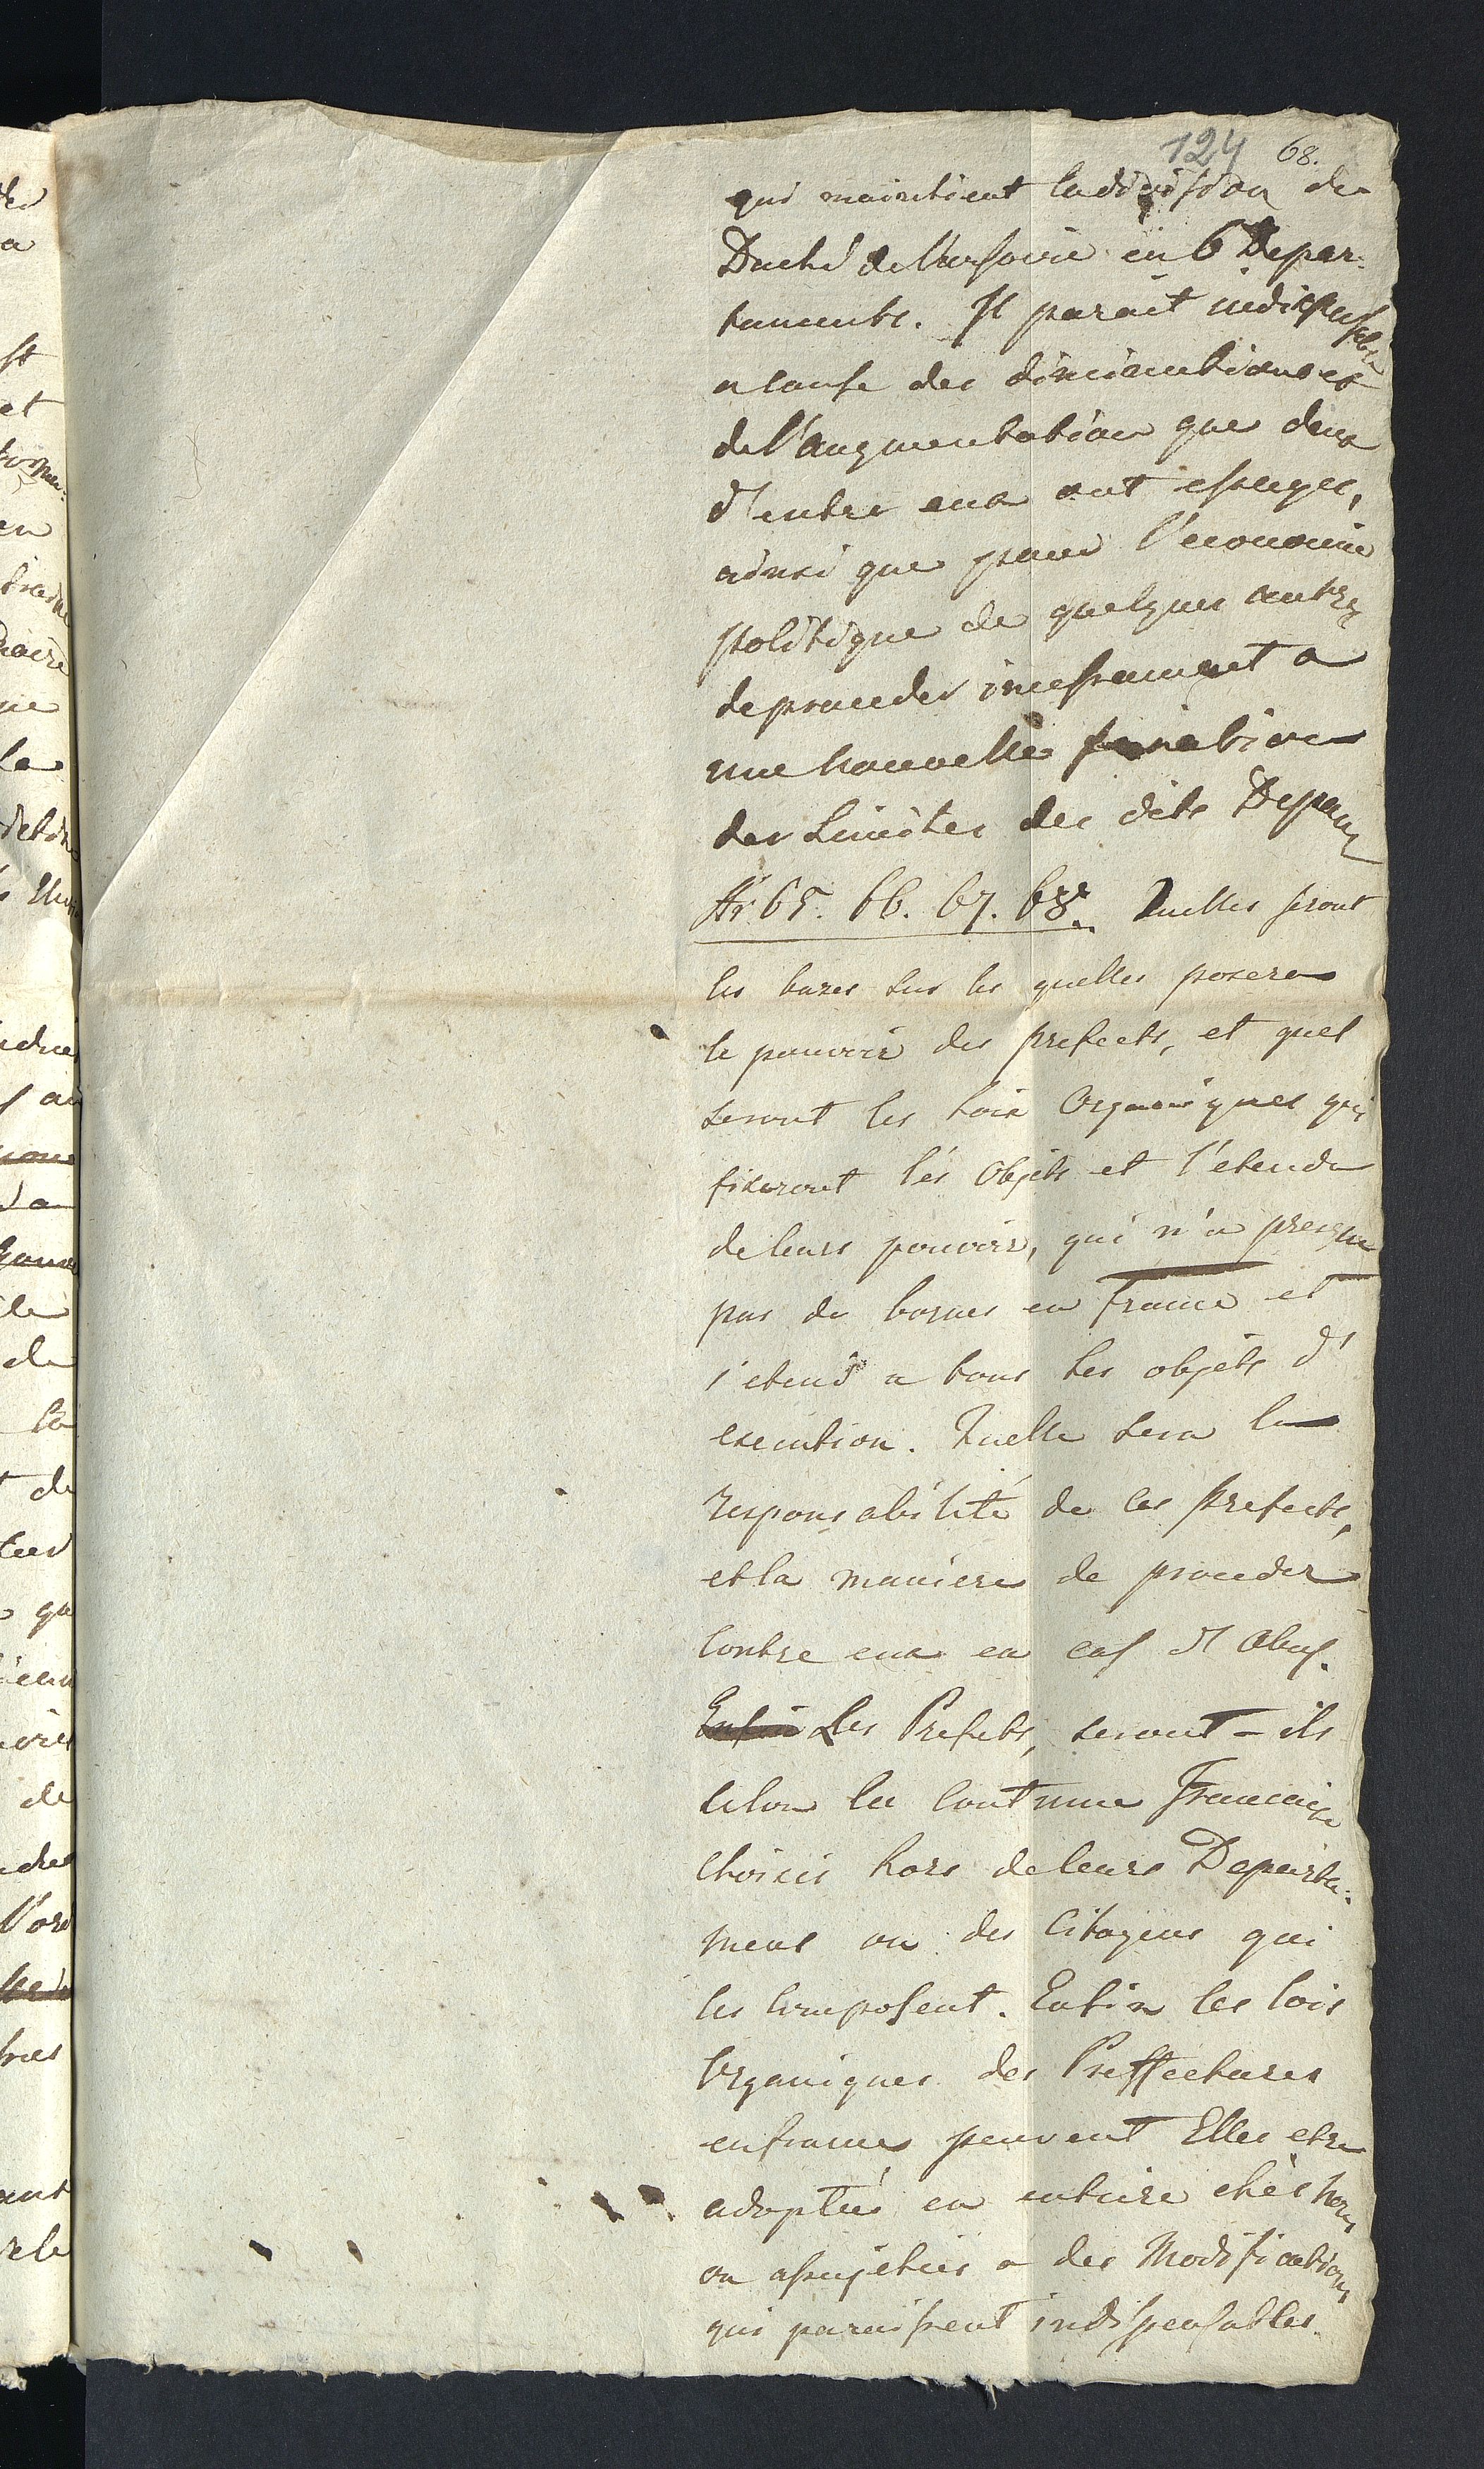 124 68.
qui maintient la division de
Duché de Varsovie en 6 Depar-
tements. Il parait indispensable
a cause des diminutions et
de l'augmentation que deux
d'entre eux ont essuyés,
ainsi que pour l'economie
politique de quelques autres
de proceder incessament a
une nouvelle
des Limites des dits Depar
Ar 65. 66. 67. 68. Quelles seront
les bazes sur les quelles posera
le pouvoir des prefects, et quel
seront les loix Organiques qui
fixeront lés Objets et l'etendu
de leurs pouvoir, qui n'a presque
pas de bornes en France et
s'etend a tous les objets d'
execution. Quelle sera la
responsabilité de ces prefects,
et la maniere de proceder
contre eux en cas d'abus.
Enfin Les Prefets, seront-ils
selon la coutume Francaise
choisis hors de leurs Departe-
ment ou des Citoyens qui
les composent. Enfin les lois
Organiques des Preffectures
en france peuvent Elles etre
adoptés en entiere chés nous
ou assujeties a des Modifications
qui paraissent indispensables.